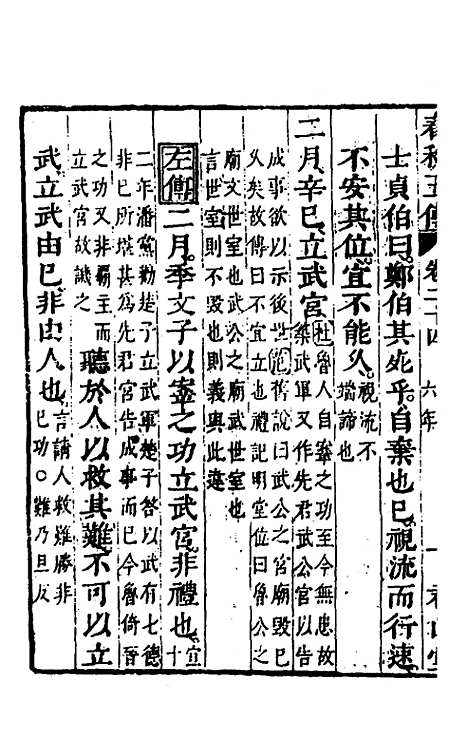 春秋五傳 卷二十四 六年 一
士貞伯曰鄭伯其死乎自棄也已視流而行速
不安其位宜不能久視流不端諦也
二月辛巳立武宮杜魯人自鞌之功至今無患故築武軍又作先君武公宮以告
成事欲以示後世范舊說曰武公之宮廟毀已久矣故傳曰不宜立也禮記明堂位曰魯公之
廟文世室也武公之廟武世室也言世室則不毀也則義與此違
左傳二月季文子以鞌之功立武宮非禮也宣十
二年潘黨勸楚子立武軍楚子答以武有七德非已所堪其為先君宮告成事而已今魯倚晉
之功又非霸主而立武宮故譏之聽於人以救其難不可以立
武立武由已非由人也言請人救難勝非已功○難乃旦反